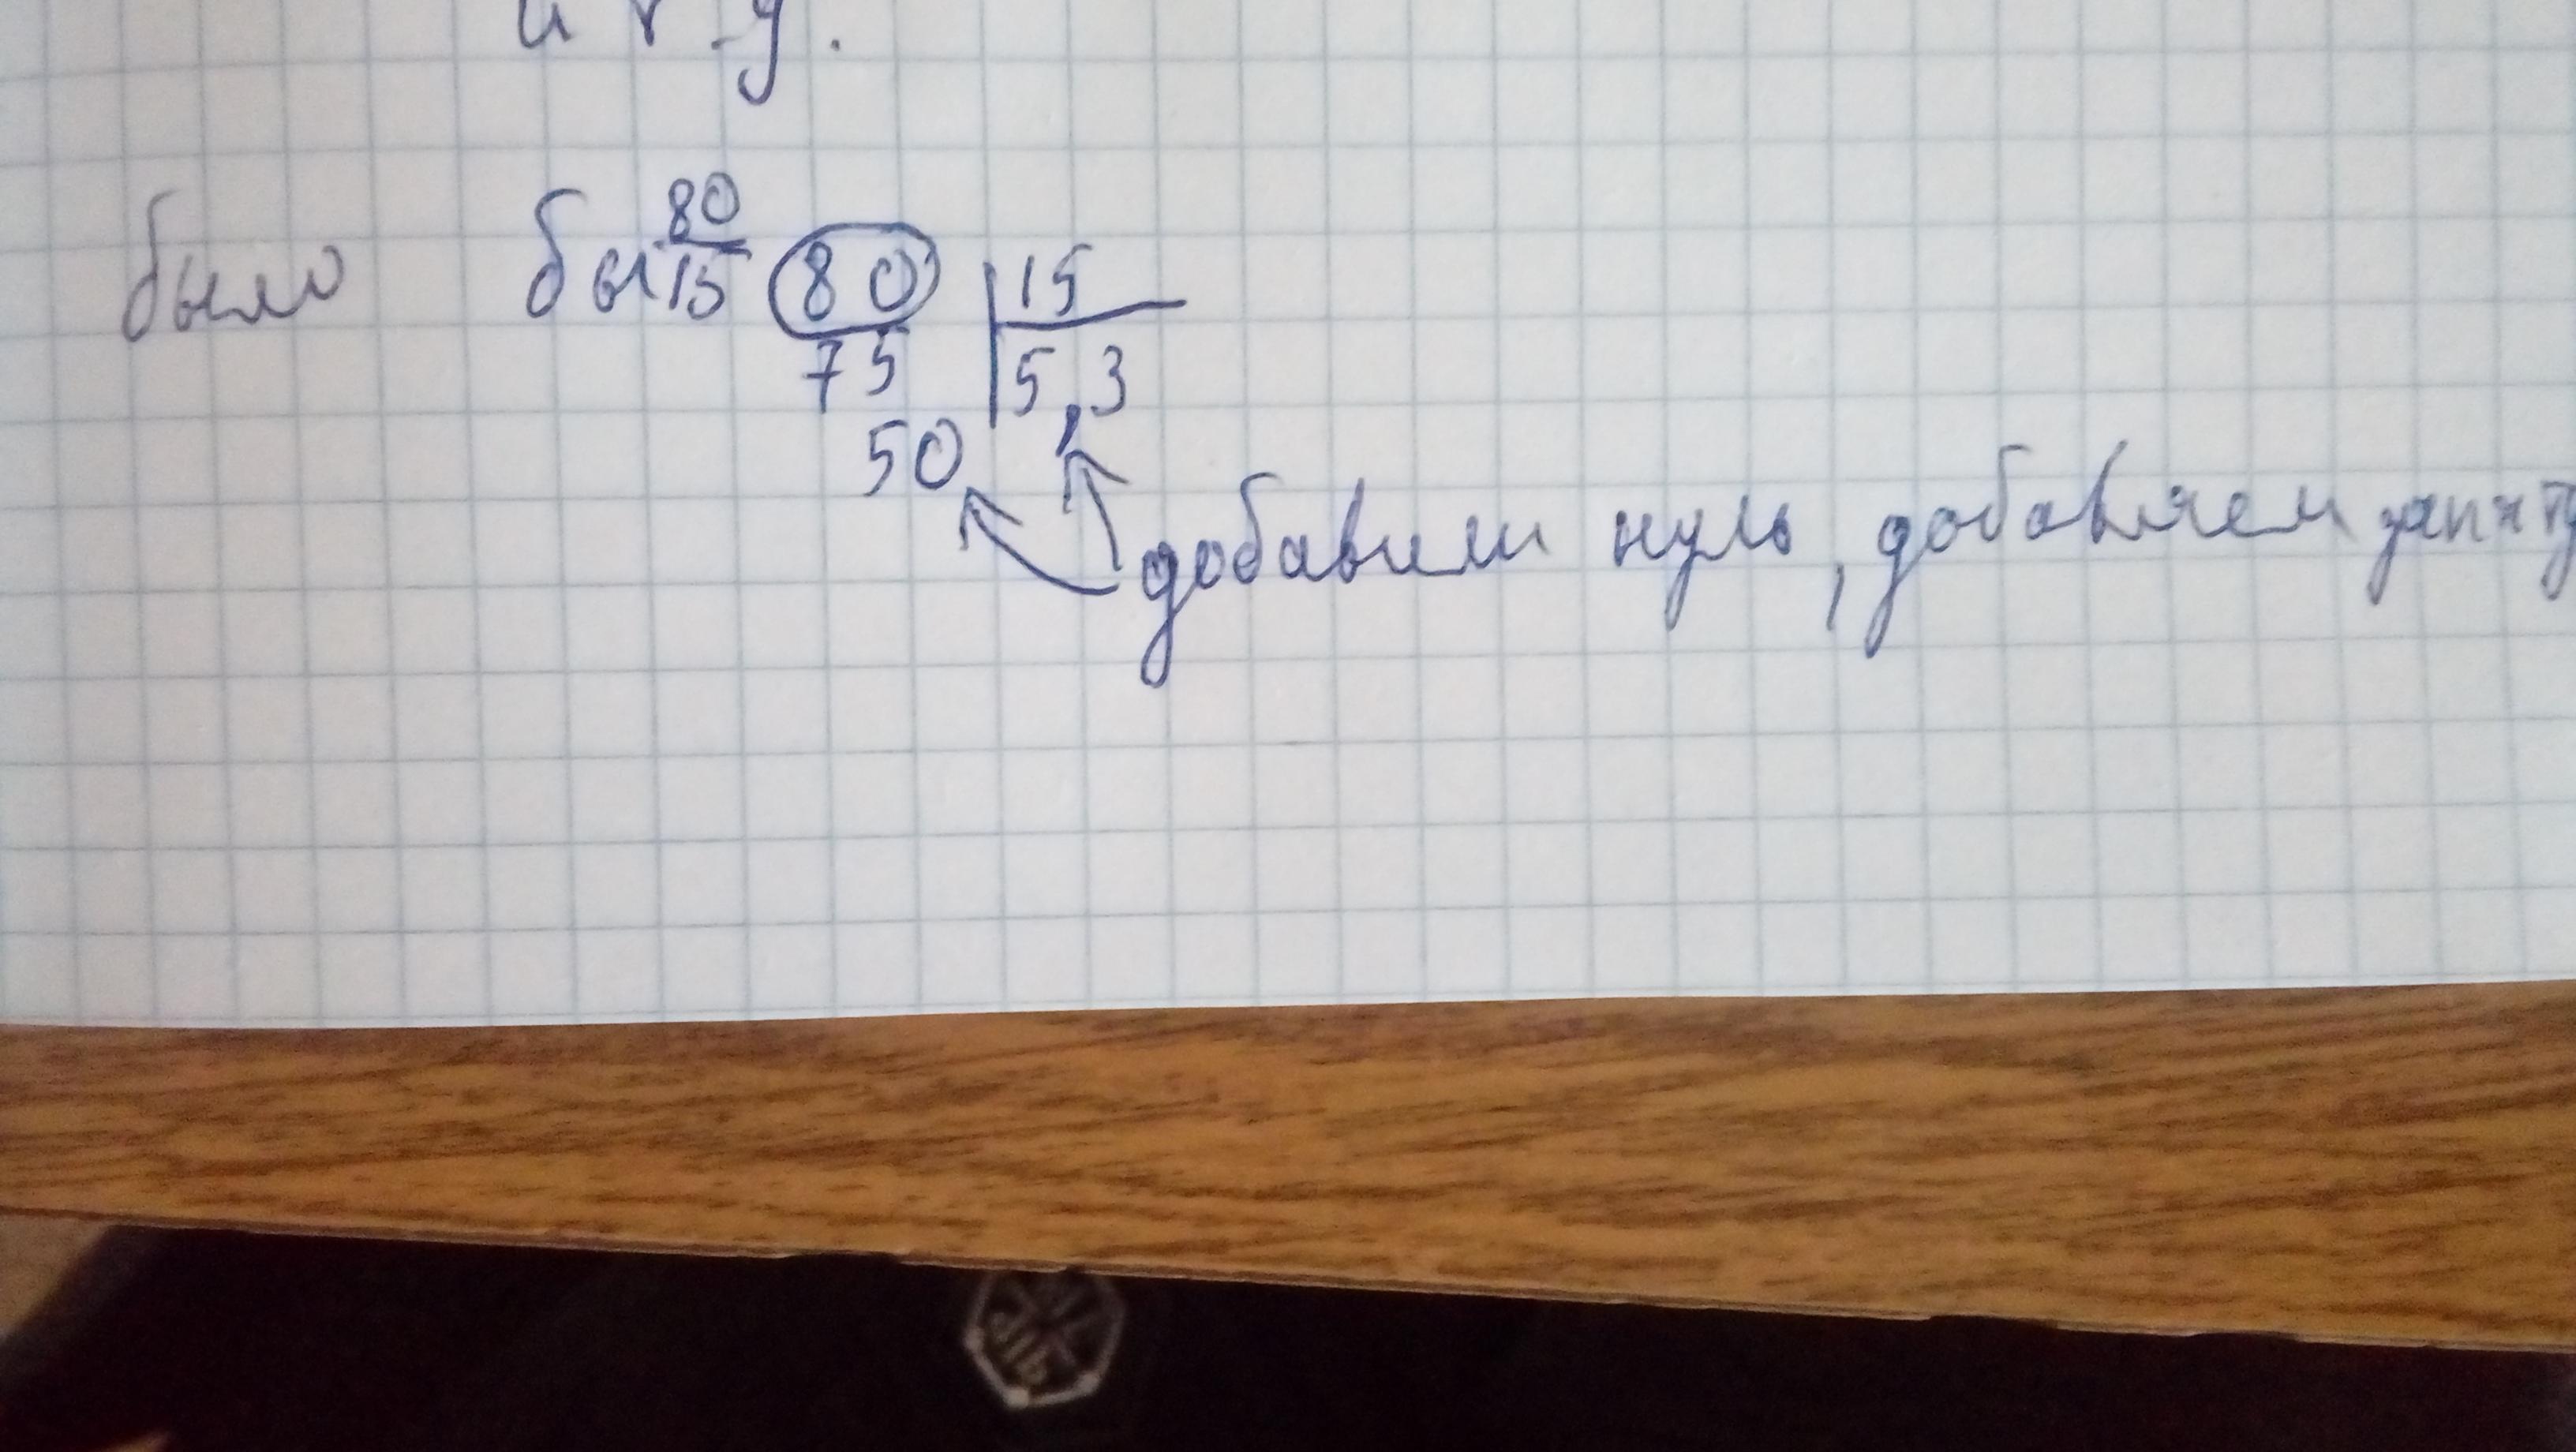 и т.д.
было бы 80/15 80 | 15
75 5,3
50
добавили нуль, добавляем запяту